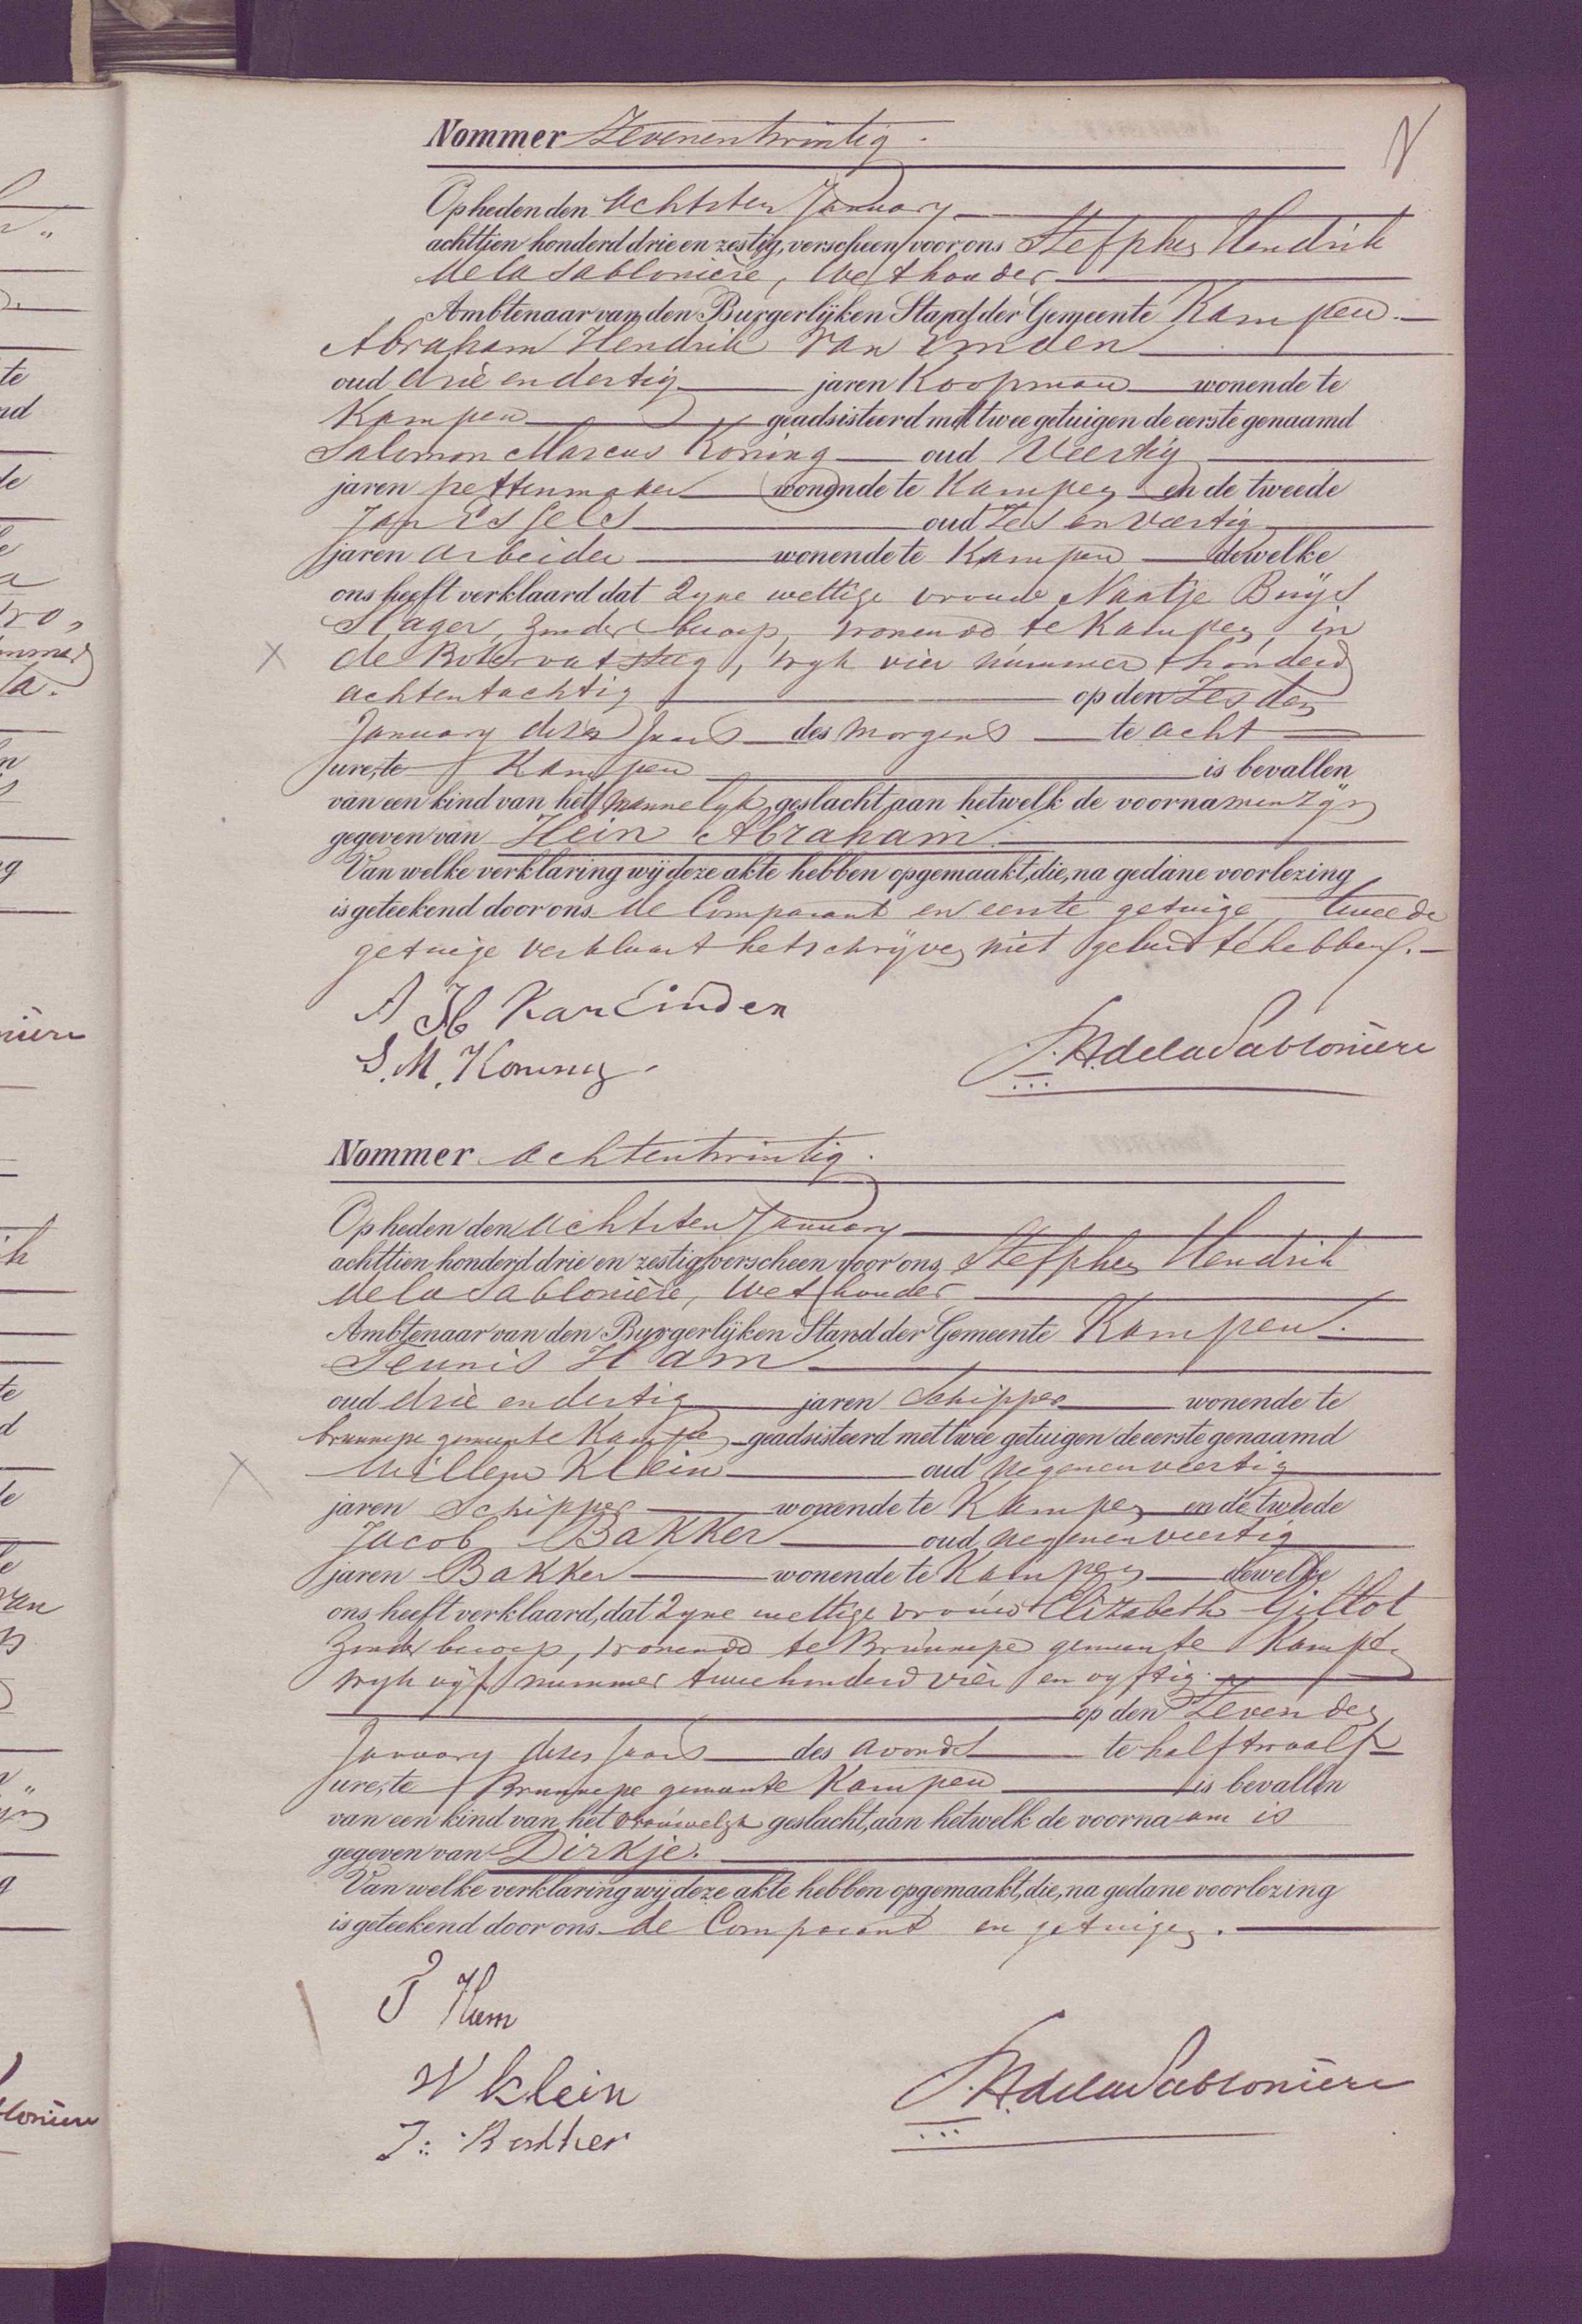 Nommer Zevenentwintig.
Op heden den Achtsten January
achttien honderd drie en zestig, verscheen voor ons Stefphen Hendrik
de la Sablonière, Wethouder
Ambtenaar van den Burgerlijken Stand der Gemeente Kampen.
Abraham Hendrik van Emden
oud drie en dertig jaren Koopman wonende te
Kampen geadsisteerd met twee getuigen de eerste genaamd
Salomon Marcus Koning oud Veertig
jaren pettenmaker wonende te Kampen en de tweede
Jan Essels oud Zes en veertig
jaren arbeider wonende te Kampen dewelke
ons heeft verklaard dat Zyne wettige vrouw Naatje Buijs
Slager, Zonder beroep, wonende te Kampen, in
de Botervatsteeg, wyk vier nummer honderd
achtentachtig op den Zesden
January dezes Jaars des morgens te acht
ure, te Kampen is bevallen
van een kind van het mannelyk geslacht, aan hetwelk de voornamen zyn
gegeven van Hein Abraham.
Van welke verklaring wij deze akte hebben opgemaakt, die, na gedane voorlezing
is geteekend door ons de Comparant en eerste getuige, tweede
getuige verklaart het schryven niet geleerd te hebben.
A H van Emden
S. M. Koning.
S. H. de la Sablonière
Nommer Achtentwintig.
Op heden den Achtsten January
achttien honderd drie en zestig, verscheen voor ons Stefphen Hendrik
de la Sablonière, Wethouder
Ambtenaar van den Burgerlijken Stand der Gemeente Kampen.
Teunis Ham
oud drie en dertig jaren Schipper wonende te
brunnepe gemeente Kampen geadsisteerd met twee getuigen de eerste genaamd
Willem Klein oud negenenveertig
jaren Schipper wonende te Kampen en de tweede
Jacob Bakker oud negenenveertig
jaren Bakker wonende te Kampen dewelke
ons heeft verklaard, dat Zyne wettige vrouw Elizabeth Gillot
Zonder beroep, wonende te Brunnepe gemeente Kampen
wyk vyf nummer tweehonderd vier en vyftig.
op den Zevenden
January dezes Jaars des avonds te half twaalf
ure, te Brunnepe gemeente Kampen is bevallen
van een kind van het vrouwelyk geslacht, aan hetwelk de voornaam is
gegeven van Dirkje.
Van welke verklaring wij deze akte hebben opgemaakt, die, na gedane voorlezing
is geteekend door ons de Comparant en getuigen.
T Ham
W Klein
J: Bakker
S. H. de la Sablonière